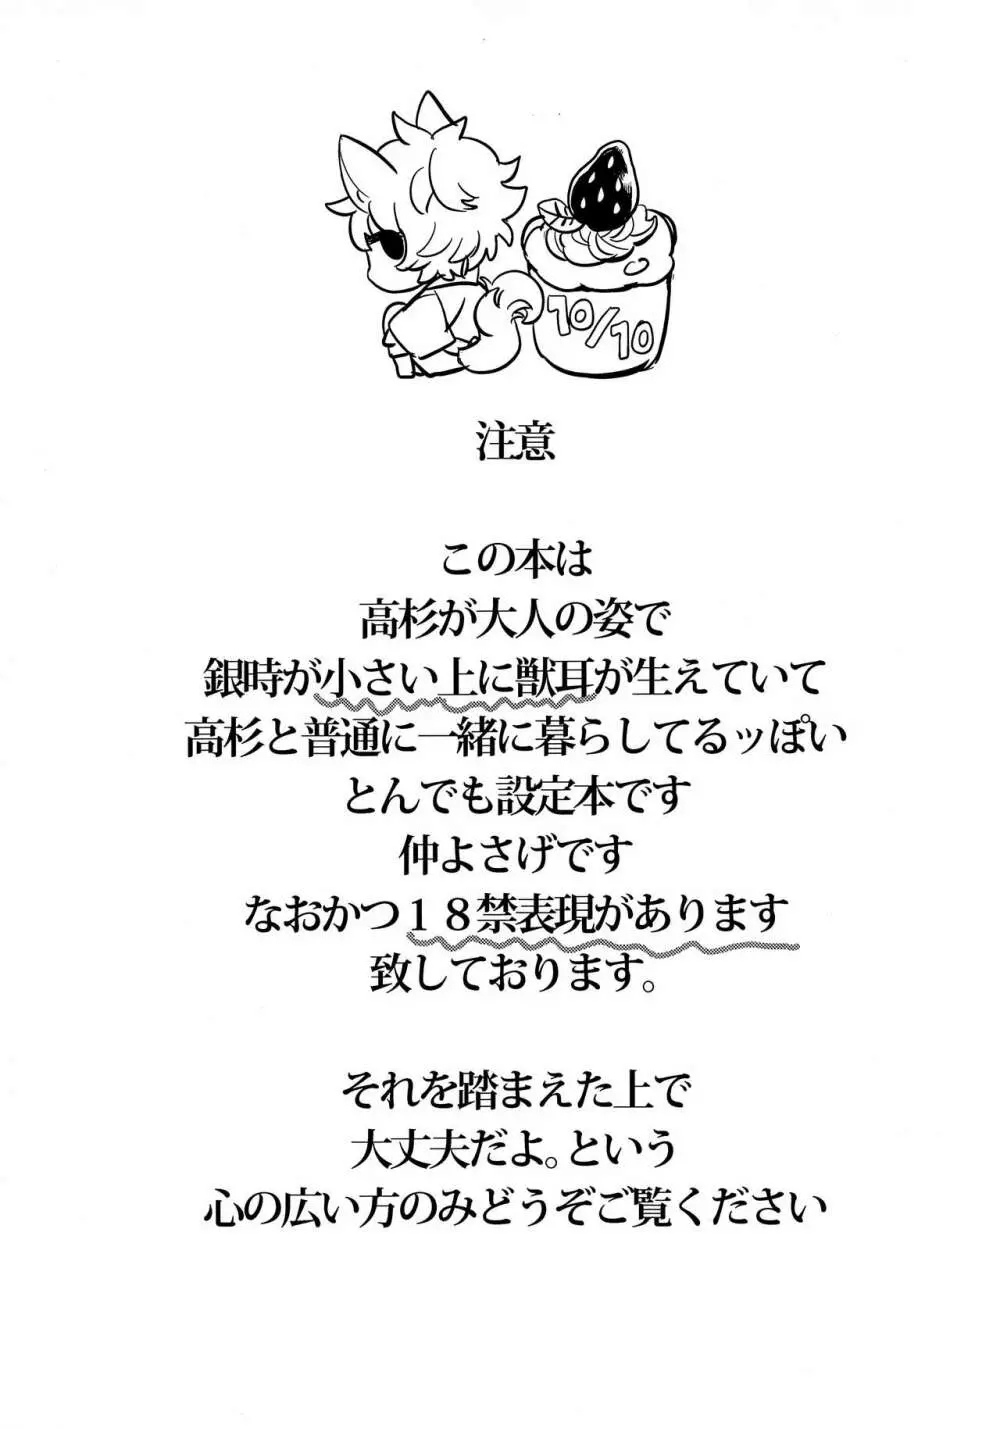 10/10
注意
この本は
高杉が大人の姿で
銀時が小さい上に獣耳が生えていて
高杉と普通に一緒に暮らしてるッぽい
とんでも設定本です
仲よさげです
なおかつ１８禁表現があります
致しております。
それを踏まえた上で
大丈夫だよ。という
心の広い方のみどうぞご覧ください